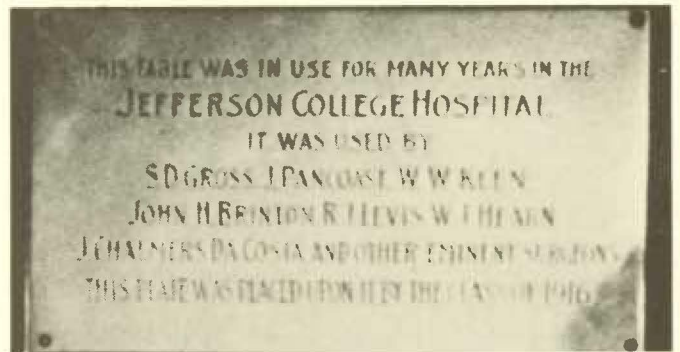 THIS TABLE WAS IN USE FOR MANY YEARS IN THE
JEFFERSON COLLEGE HOSPITAL
IT WAS USED BY
S D GROSS J PANCOAST W W KEEN
JOHN H BRINTON R J LEVIS W J HEARN
J CHALMERS DA COSTA AND OTHER EMINENT SURGEONS
THIS PLATE WAS PLACED UPON IT BY THE CLASS OF 1916